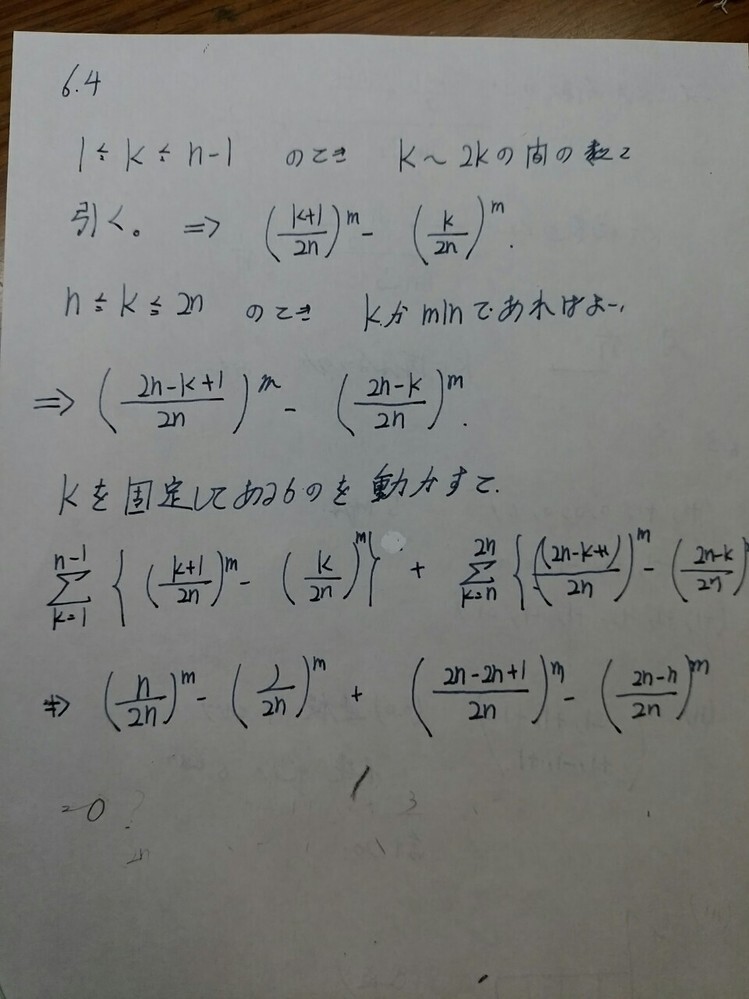 6.4
1 ≦ k ≦ n-1 のとき k～2kの間の数を
引く。 ⇒ (k+1/2n)^m - (k/2n)^m.
n ≦ k ≦ 2n のとき kがminであればよい
⇒ (2n-k+1/2n)^m - (2n-k/2n)^m.
kを固定してあるものを動かすと.
Σ_{k=1}^{n-1} { (k+1/2n)^m - (k/2n)^m } + Σ_{k=n}^{2n} { ((2n-k+1)/2n)^m - (2n-k/2n)^m
⇒ (n/2n)^m - (1/2n)^m + (2n-2n+1/2n)^m - (2n-n/2n)^m
=0 ?